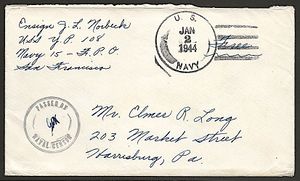 Ensign J. L. Norbeck
USS Y.P. 108
Navy 15 - F.P.O
San Francisco
U. S.
JAN
2
1944
NAVY
Free
PASSED BY
NAVAL CENSOR
Mr. Elmer R. Long
203 Market Street
Harrisburg, Pa.